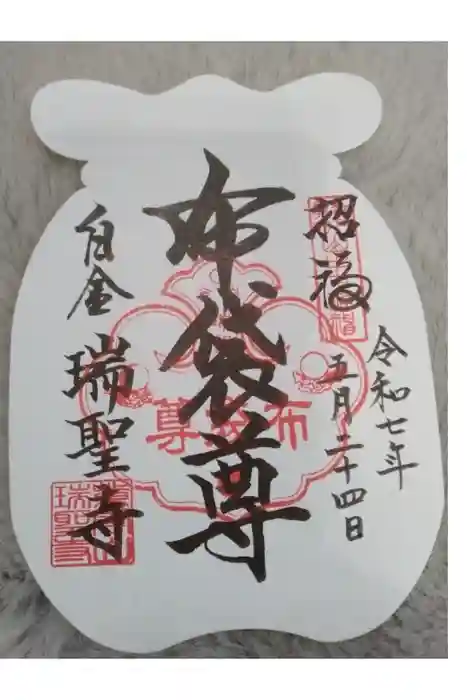 招福
令和七年
五月二十四日
布袋尊
白金
瑞聖寺
尊袋布
瑞聖寺